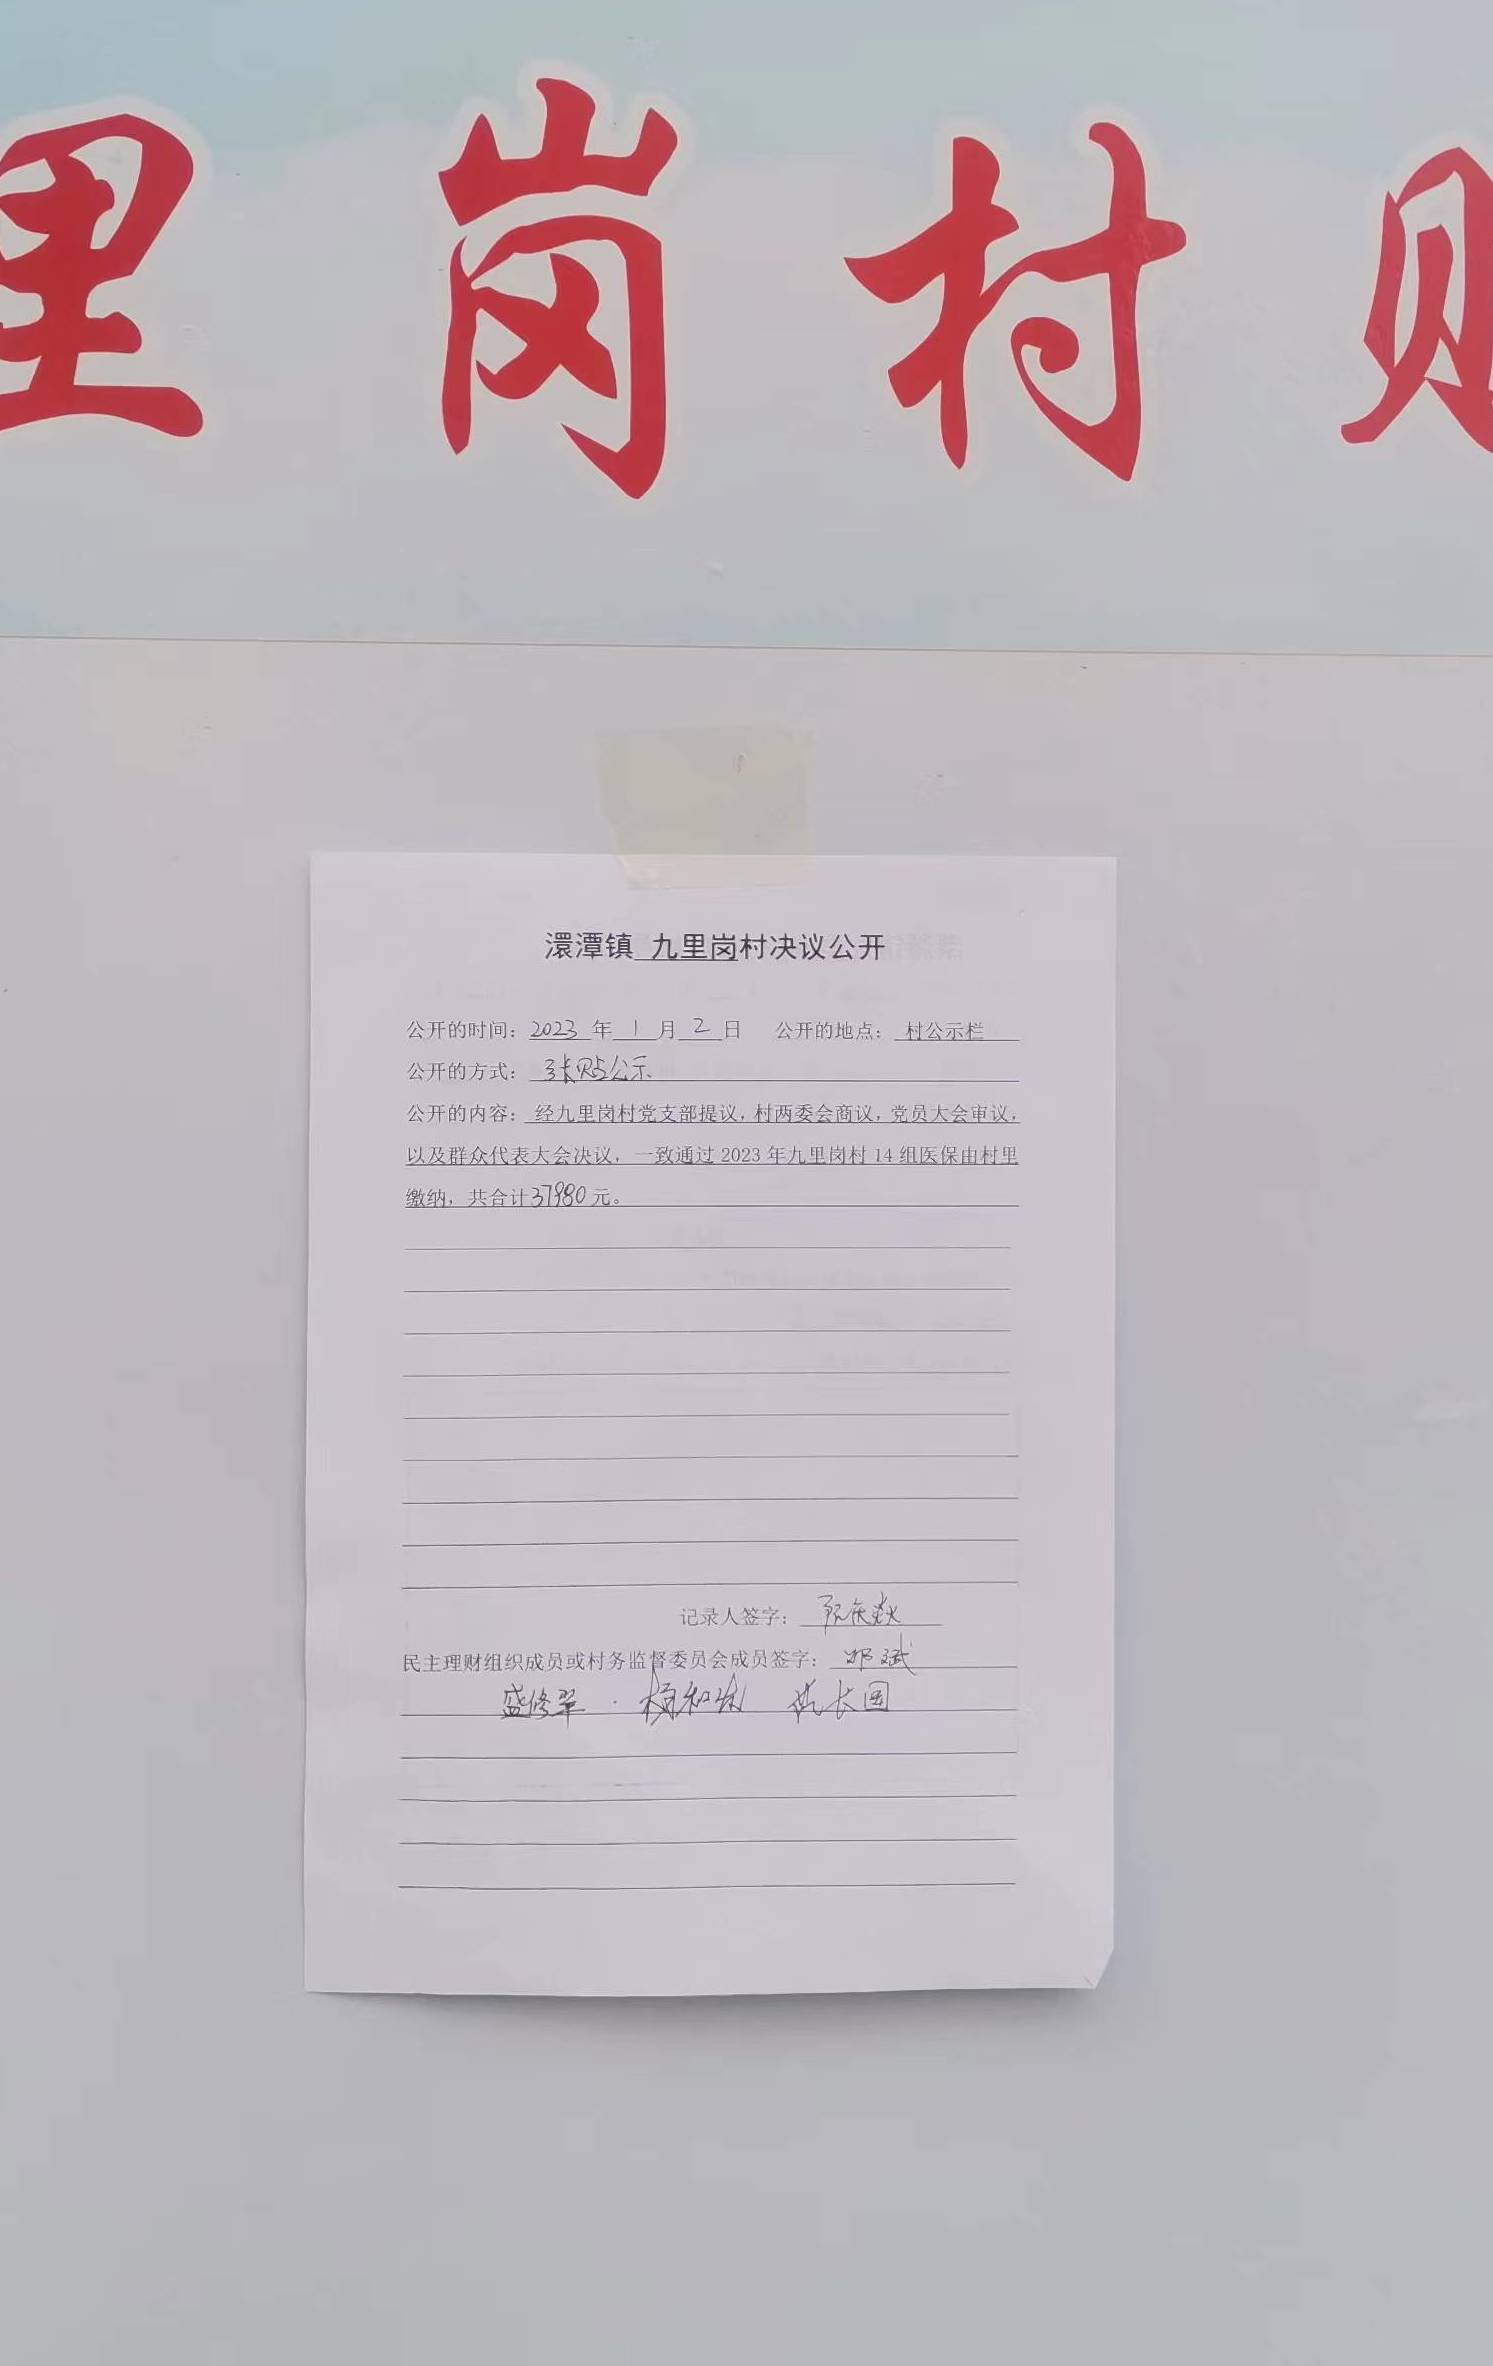 里岗村财
澴潭镇 九里岗村决议公开
公开的时间：2023 年 1 月 2 日 公开的地点：村公示栏
公开的方式：张贴公示
公开的内容：经九里岗村党支部提议，村两委会商议，党员大会审议，
以及群众代表大会决议，一致通过 2023 年九里岗村 14 组医保由村里
缴纳，共合计37980元。
记录人签字：
民主理财组织成员或村务监督委员会成员签字：邓斌
盛修翠